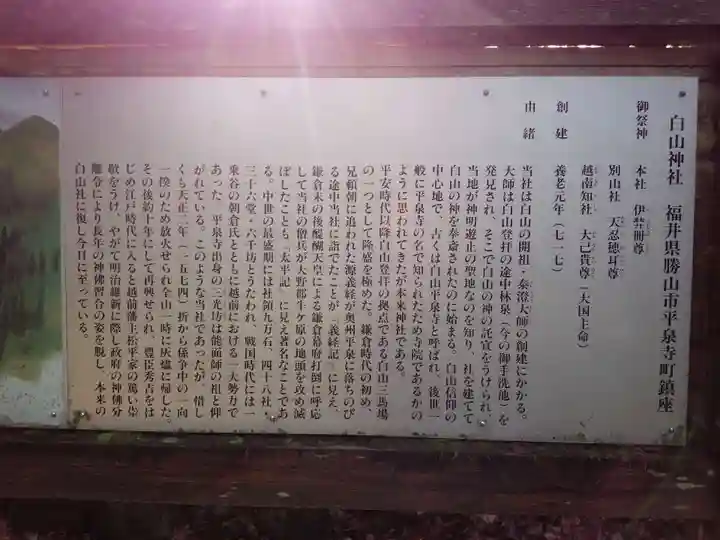 白山神社　福井県勝山市平泉寺町鎮座
御祭神　本社　伊弉冊尊
別山社　天忍穂耳尊
越南知社　大己貴尊（大国主命）
創建　養老元年（七一七）
由緒　当社は白山の開祖・泰澄大師の創建にかかる。
大師は白山登拝の途中林泉（今の御手洗池）を
発見され、そこで白山の神の託宣をうけられ、
当地が神明遊止の聖地なのを知り、社を建てて
白山の神を奉斎されたのに始まる。白山信仰の
中心地で、古くは白山平泉寺と呼ばれ、後世一
般に平泉寺の名で知られたため寺院であるかの
ように思われてきたが本来神社である。
平安時代以降白山登拝の拠点である白山三馬場
の一つとして隆盛を極めた。鎌倉時代の初め、
兄頼朝に追われた源義経が奥州平泉に落ちのび
る途中当社に詣でたことが「義経記」に見え、
鎌倉末の後醍醐天皇による鎌倉幕府打倒に呼応
して当社の僧兵が大野郡牛ケ原の地頭を攻め滅
ぼしたことも「太平記」に見え著名なことであ
る。中世の最盛期には社領九万石、四十八社・
三十六堂・六千坊とうたわれ、戦国時代には一
乗谷の朝倉氏とともに越前における一大勢力で
あった　平泉寺出身の三光坊は能面師の祖と仰
がれている。このような当社であったが、惜し
くも天正二年（一五七四）折から係争中の一向
一揆のため放火せられ全山一時に灰燼に帰した。
その後約十年にして再興せられ、豊臣秀吉をは
じめ江戸時代に入ると越前藩主松平家の篤い崇
敬をうけ、やがて明治維新に際し政府の神佛分
離令により長年の神佛習合の姿を脱し、本来の
白山社に復し今日に至っている。